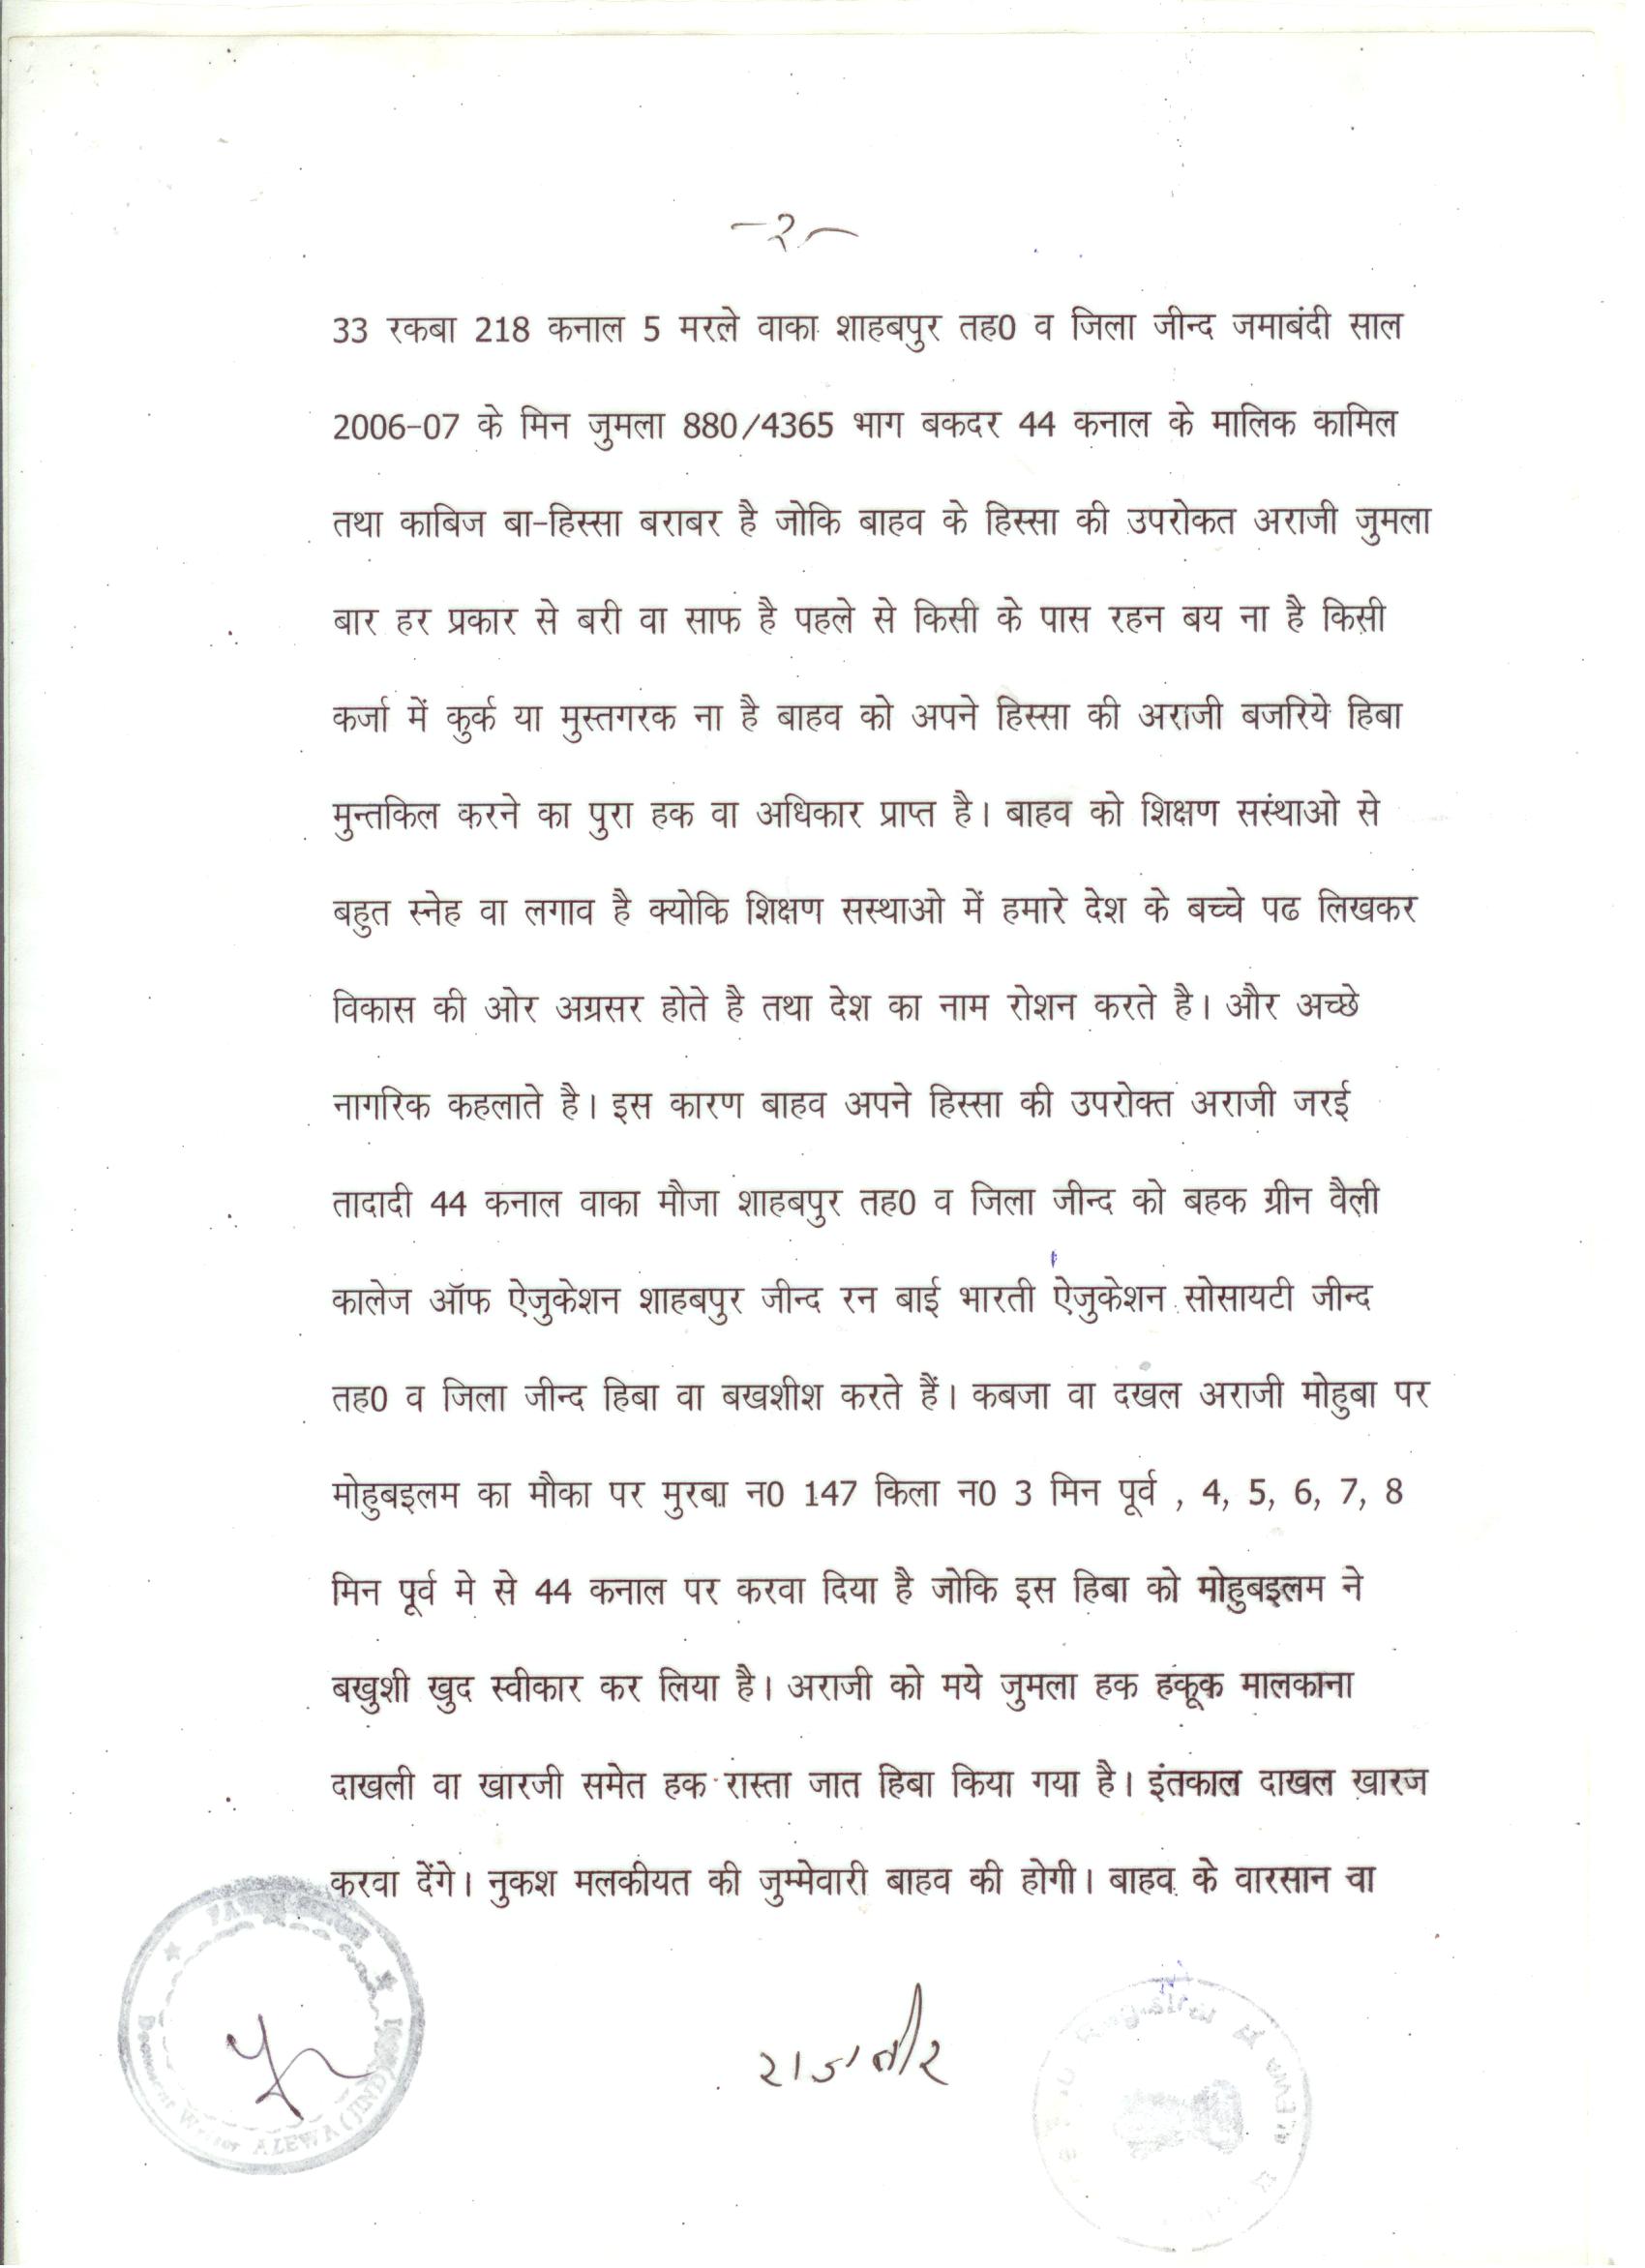 -२-
33 रकबा 218 कनाल 5 मरले वाका शाहबपुर तह0 व जिला जीन्द जमाबंदी साल
2006-07 के मिन जुमला 880/4365 भाग बकदर 44 कनाल के मालिक कामिल
तथा काबिज बा-हिस्सा बराबर है जोकि बाहव के हिस्सा की उपरोकत अराजी जुमला
बार हर प्रकार से बरी वा साफ है पहले से किसी के पास रहन बय ना है किसी
कर्जा में कुर्क या मुस्तगरक ना है बाहव को अपने हिस्सा की अराजी बजरिये हिबा
मुन्तकिल करने का पुरा हक वा अधिकार प्राप्त है। बाहव को शिक्षण सस्ंथाओ से
बहुत स्नेह वा लगाव है क्योकि शिक्षण सस्थाओ में हमारे देश के बच्चे पढ लिखकर
विकास की ओर अग्रसर होते है तथा देश का नाम रोशन करते है। और अच्छे
नागरिक कहलाते है। इस कारण बाहव अपने हिस्सा की उपरोक्त अराजी जरई
तादादी 44 कनाल वाका मौजा शाहबपुर तह0 व जिला जीन्द को बहक ग्रीन वैली
कालेज ऑफ ऐजुकेशन शाहबपुर जीन्द रन बाई भारती ऐजुकेशन सोसायटी जीन्द
तह0 व जिला जीन्द हिबा वा बखशीश करते हैं। कबजा वा दखल अराजी मोहुबा पर
मोहुबइलम का मौका पर मुरबा न0 147 किला न0 3 मिन पूर्व , 4, 5, 6, 7, 8
मिन पूर्व मे से 44 कनाल पर करवा दिया है जोकि इस हिबा को मोहुबइलम ने
बखुशी खुद स्वीकार कर लिया है। अराजी को मये जुमला हक हकूक मालकाना
दाखली वा खारजी समेत हक रास्ता जात हिबा किया गया है। इंतकाल दाखल खारज
करवा देंगे। नुकश मलकीयत की जुम्मेवारी बाहव की होगी। बाहव के वारसान वा
Document Writer ALEWA (JIND)